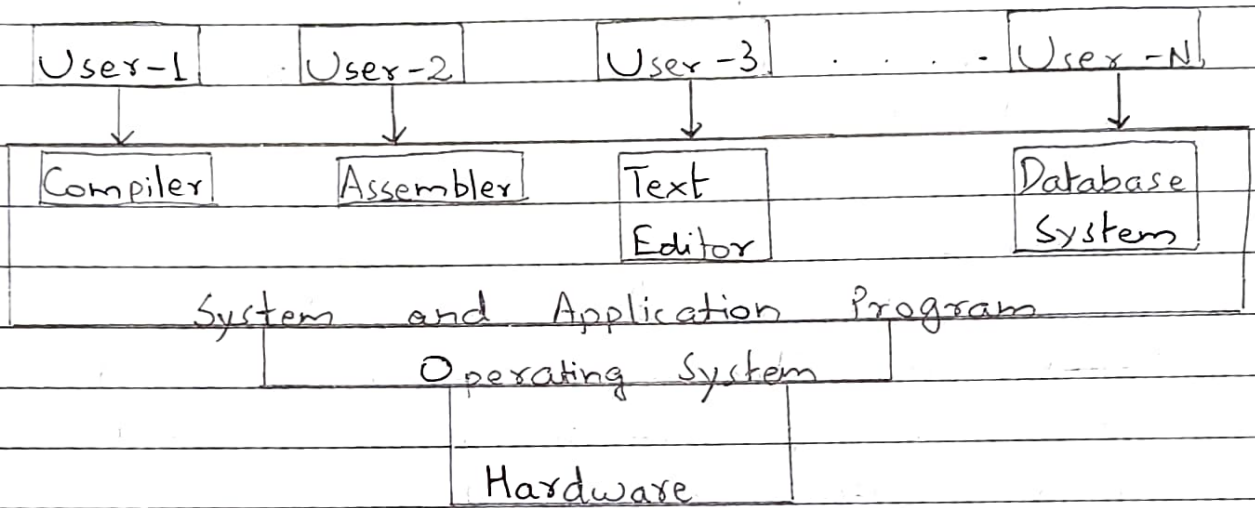 User-1 User-2 User-3 . . . . - User-N
Compiler Assembler Text Database
Editor System
System and Application Program
Operating System
Hardware